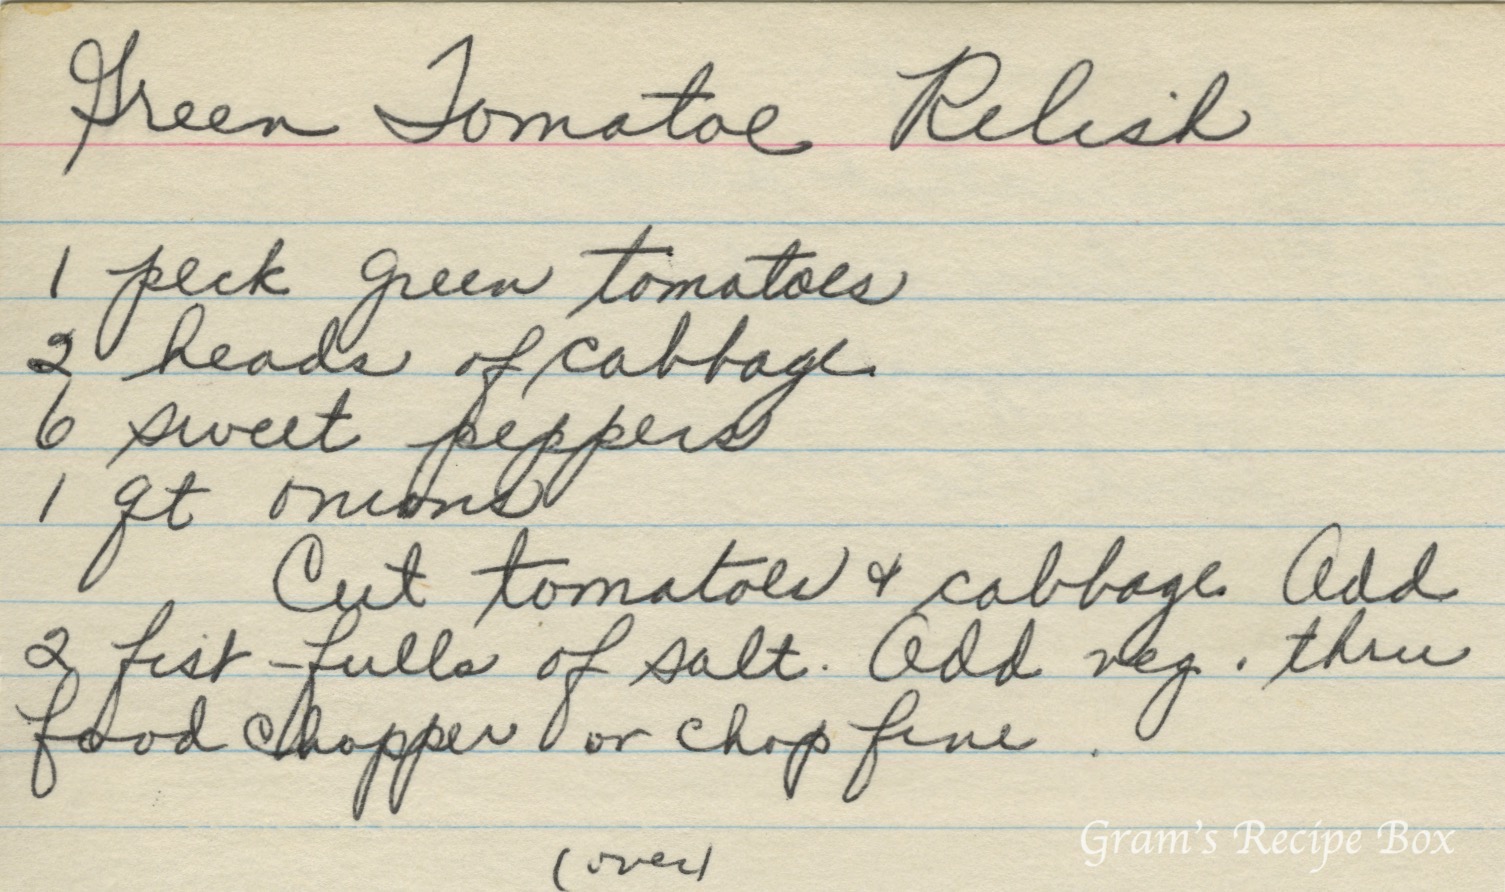 Green Tomatoe Relish
1 peck green tomatoes
2 heads of cabbage.
6 sweet peppers
1 qt onions
Cut tomatoes & cabbage. Add
2 fist-fulls of salt. Add veg. thru
food chopper or chop fine.
(over)
Gram's Recipe Box